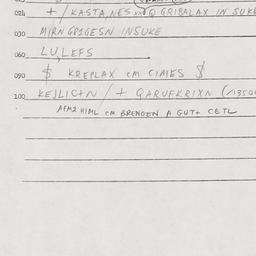 024 + / KASTA,NES GRIBALAX IN SUKE
030 MIRN GRIGESN INSUKE
060 LU,LEFS
090 $ KREPLAX CM CIMES $
100 KEJLICTN / + QARUFKRIXN
AFM2 HIML CM BRENGEN A GUT+ CETL